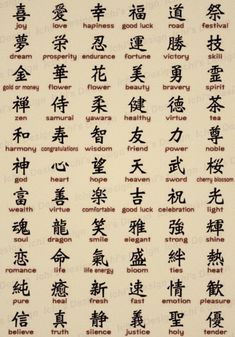 喜 愛 幸 福 道 祭
joy love happiness good luck road festival
夢 栄 忍 運 勝 技
dream prosperity endurance fortune victory skill
金 華 花 美 勇 霊
gold or money flower flower beauty bravery spirit
禅 侍 柔 健 徳 茶
zen samurai yawara healthy virtue tea
和 寿 智 友 力 尊
harmony congratulations wisdom friend power noble
神 心 望 天 武 桜
god heart hope heaven sword cherry blossom
富 善 楽 吉 祝 光
wealth virtue comfortable good luck celebration light
魂 龍 笑 雅 強 輝
soul dragon smile elegant strong shine
恋 命 気 盛 絆 熱
romance life life energy bloom ties heat
純 癒 新 速 情 歓
pure heal fresh fast emotion pleasure
信 真 静 義 聖 優
believe truth silence justice holy tender